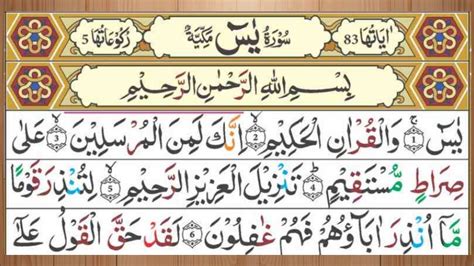 اٰيَاتُهَا 83 سُوْرَةُ يٰسٓ مَكِّيَّةٌ رُكُوْعَاتُهَا 5
بِسْمِ اللّٰهِ الرَّحْمٰنِ الرَّحِيْمِ
يٰسٓ ۚ 1 وَالْقُرْاٰنِ الْحَكِيْمِ 2 اِنَّكَ لَمِنَ الْمُرْسَلِيْنَ 3 عَلٰى
صِرَاطٍ مُّسْتَقِيْمٍ 4 تَنْزِيْلَ الْعَزِيْزِ الرَّحِيْمِ 5 لِتُنْذِرَ قَوْمًا
مَّاۤ اُنْذِرَ اٰبَآؤُهُمْ فَهُمْ غٰفِلُوْنَ 6 لَقَدْ حَقَّ الْقَوْلُ عَلٰٓى